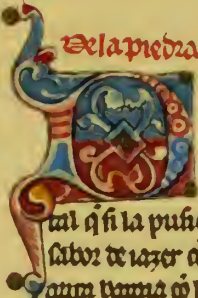 De la piedra
tal q̃ si la pusie
sabor de iazer cõ